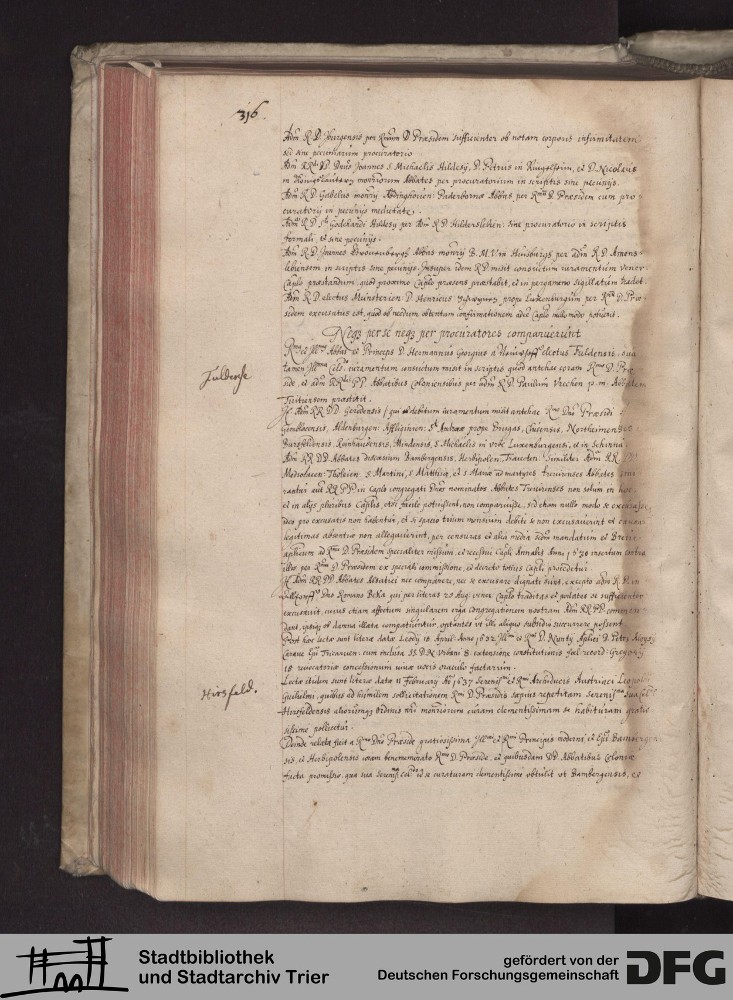 316.
Adm. R. D. Iburgensis per Rmum D. Præsidem sufficienter ob notam corporis infirmitatem
sed sine pecuniarum procuratorio
Adm. RRdi PP. Dnus Joannes S. Michaelis Hildesÿ, D. Petrus in Ringelheim, et D. Nicolaus
in monriorum Abbates per procuratorium in scriptis sine pecunijs.
Adm. R. D. Gabelius monrij Abdinghouien: Paderbornæ Abbas, per Rmum D. Præsidem cum pro-
curatorij in pecunijs medietate.
Adm. R. D. Sti Godehardi Hildesÿ per Adm. R. D. Hildersleben: sine procuratorio in scriptis
formali, et sine pecunijs.
Adm. R. D. Joannes Abbas monrij B. M. V. in Huisburgh per adm. R. D. Amons-
lebiensem in scriptis sine pecunijs. Insuper idem R. D. misit consuetum iuramentum vener.
Caplo præstandum, quod proximo Caplo præsens præstabit, et in pergameno sigillatum tradet.
Adm. R. D. electus Munsterien: D. Henricus prope Luxenburgum per Rmum D. Præ-
sidem excusatus est, quod ob necdum obtentam confirmationem adesse Caplo nullo modo potuerit.
Neqz per se neqz per procuratores comparuerunt
Fuldensche
Rmus et Illmus Abbas et Princeps D. Hermannus Georgius à electus Fuldensis, sua
tamen Illma Cels. iuramentum consuetum misit in scriptis quod antehac coram Rmo D. Præ-
side, et adm. RRdis PP. Abbatibus Coloniensibus per adm. R. D. Paulum Vrechen p. m. Abbatem
Tuitiensem præstitit.
It. Adm. RR. DD. Gerodensis / qui debitum iuramentum misit antehac Rmo Dno Præsidi /
Gemblacensis, Aldenburgen: Affligmien: Sti Andreæ prope Brugas, Northeimensis
Bursfeldensis, Reinhausensis, Mindensis, S. Michaelis in vrbe Luxenburgensi, et in Schinna.
Adm. RR. DD. Abbates diœcesium Bambergensis, Herbipolen: Traiecten: Similiter Adm. RR.
Mediolacen: Tholeien: S. Martini, S. Matthiæ, et S. Mariæ ad martyres Treuirenses Abbates
rantur aut RR. PP. in Caplo congregati Dnos nominatos Abbates Treuirenses non solum in hoc
et in alijs pluribus Caplis, etsi facile potuissent, non comparuisse, sed etiam nullo modo se excusasse
ideo pro excusatis non habentur, et si spatio trium mensium debite se non excusauerint et causas
legitimas absentiæ non allegauerint, per censuras et alia media iuxta mandatum et Breue
aplicum ad Rmum D. Præsidem specialiter missum, et recessui Capli Annalis Anni 1630 insertum contra
illos per Rmum D. Præsidem ex speciali commissione, et decreto totius Capli procedetur.
It. Adm. RR. PP. DD. Abbates Alsatici nec comparere, nec se excusare dignati sunt, excepto adm. R. D. in
Dno Romano qui per literas 20 Aug: Caplo traditas et perlatas se sufficienter
excusauit, cuius etiam affectum singularem erga Congregationem nostram Adm. RR. PP. commen-
dant, ipsiqz ob damna illata compatiuntur, optantes in illis aliquo subsidio succurrere possent.
Post hoc lectæ sunt literæ datæ Leodij 18. April: Anni 1632 Illmi et Rmi D. Nuntij Aplici D. Petri Aloysij
Carafæ Epi Tricaricen: cum inclusa SS. D. N. Vrbani 8. extensione constitutionis fœl: record: Gregorij
15 reuocatoriæ concessionum viuæ vocis oraculo factarum.
Hirsfeld.
Lectæ etidem sunt literæ datæ 11 February Ao 1637 Serenissmi et Rmi Archiducis Austriaci Leopoldi
Guilielmi, quibus ad humilem sollicitationem Rmi D. Præsidis sæpius repetitam Serenissma sua Celsdo
Hirsfeldensis aliorumqz ordinis nri monriorum curam clementissimam se habituram gratio-
sissime pollicetur.
Deinde relata fuit a Rmo Dno Præside gratiosissima Illmi et Rmi Principis moderni, et Epi Bambergen-
sis, et Herbipolensis coram benememorato Rmo D. Præside, et quibusdam DD. Abbatibus Coloniæ
facta promissio, qua sua id se curaturam clementissime obtulit vt Bambergensis, et
Stadtbibliothek
und Stadtarchiv Trier
gefördert von der
Deutschen Forschungsgemeinschaft
DFG